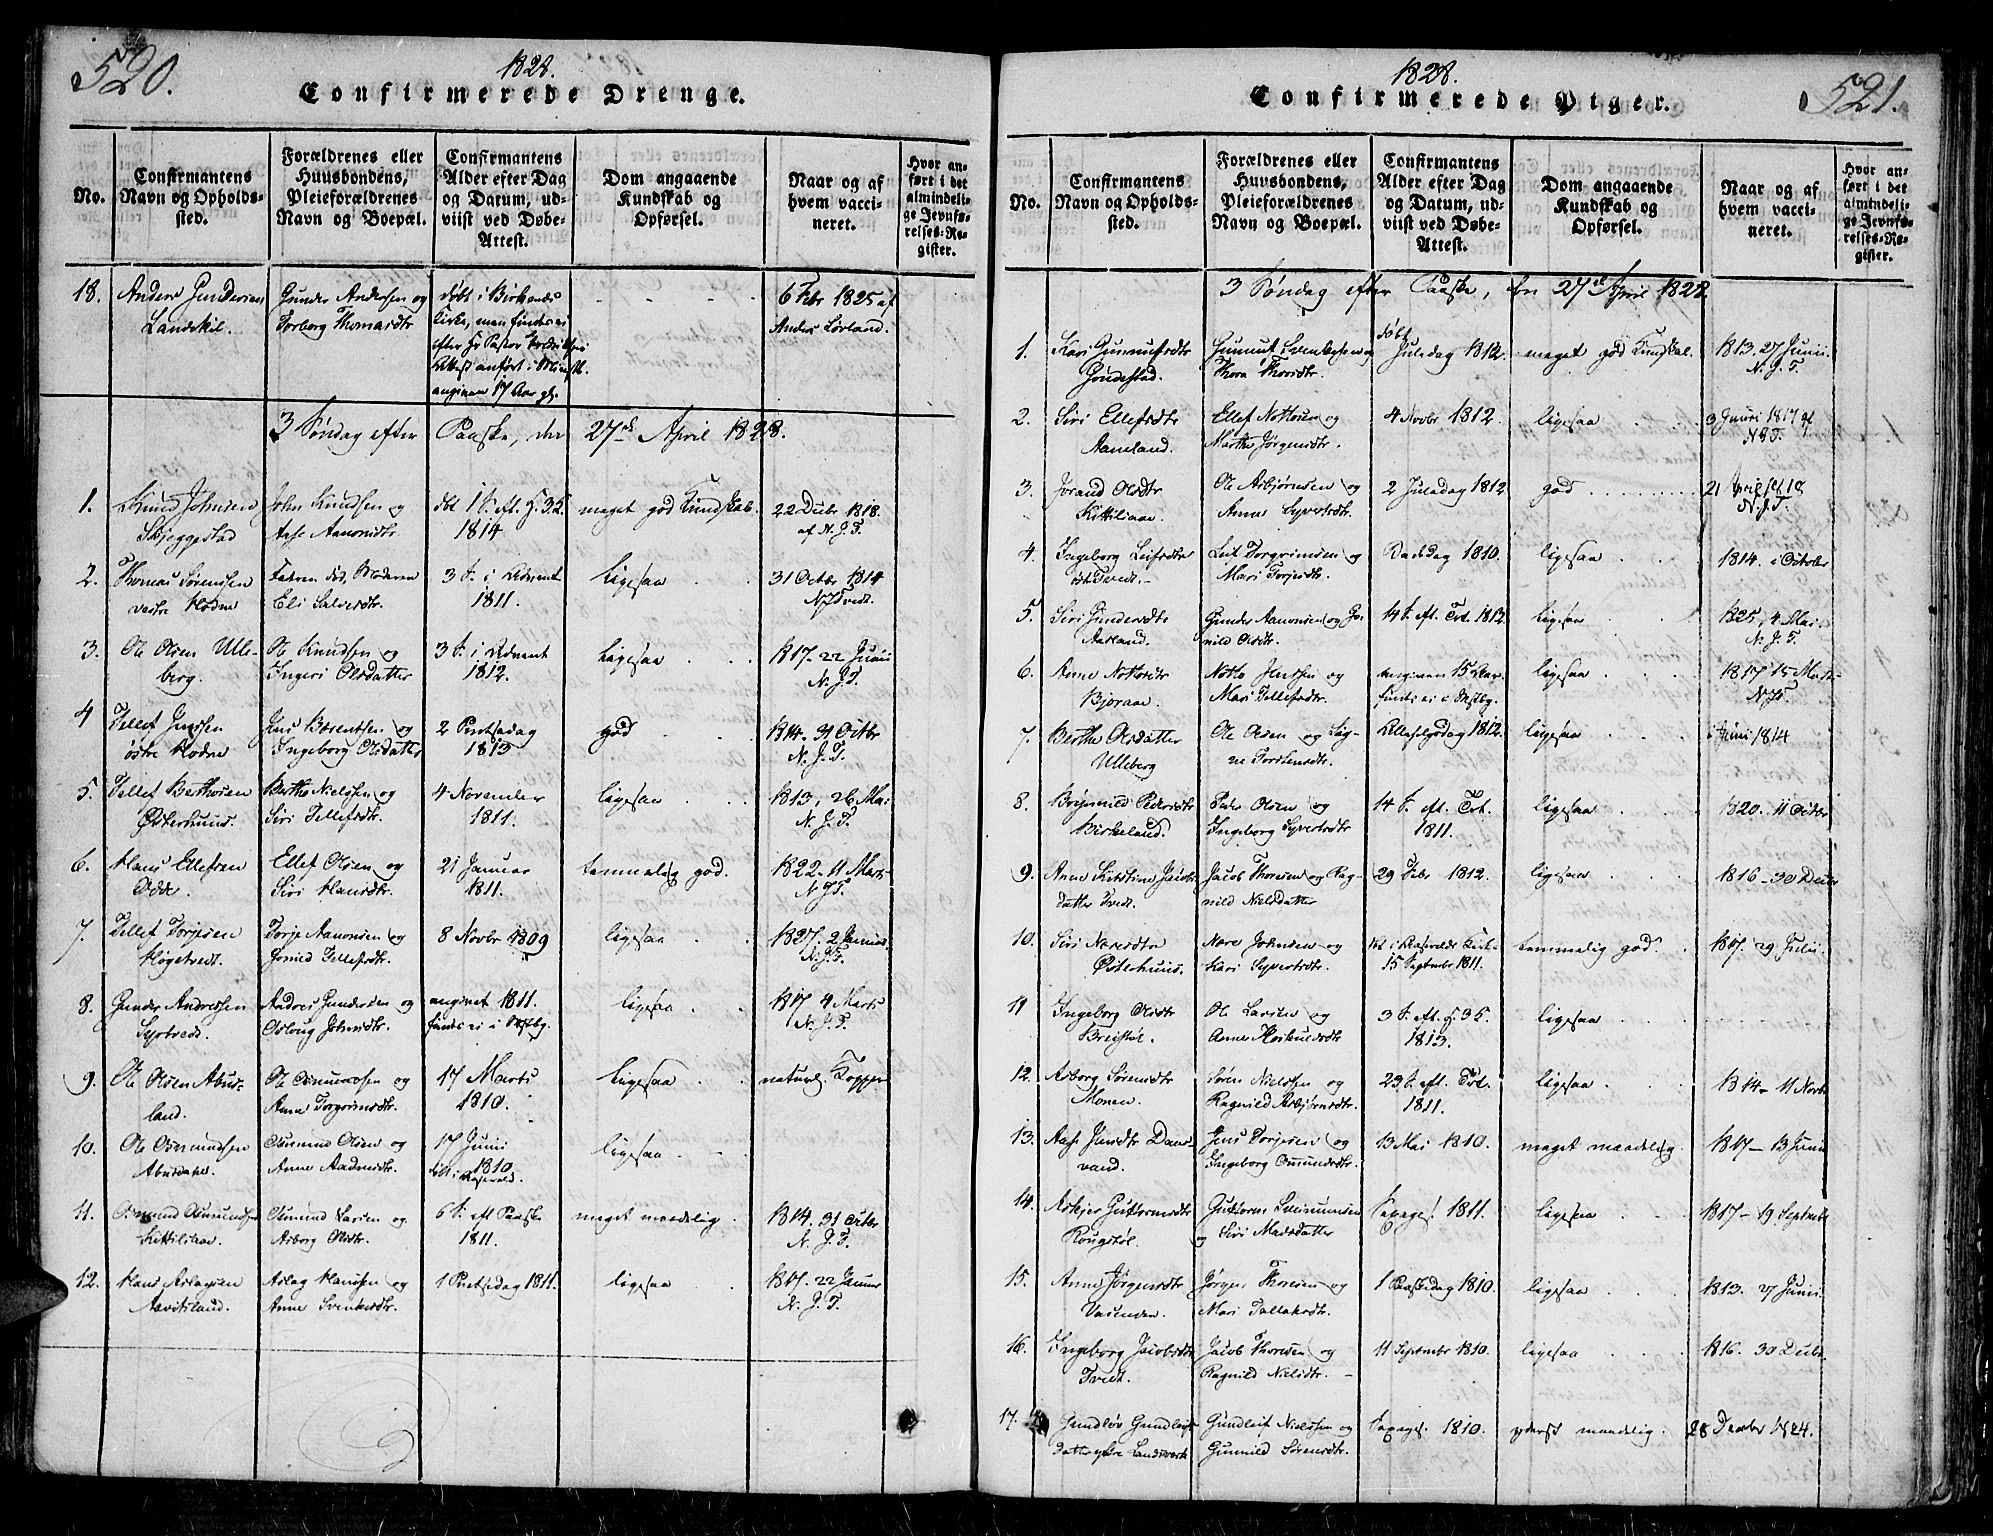 520.
1828.
Confirmerede Drenge.
No.
Confirmantens
Navn og Opholds-
sted.
Forældrenes eller
Huusbondens,
Pleieforældrenes
Navn og Boepæl.
Confirmantens
Alder efter Dag
og Datum, ud-
viist ved Døbe-
Attest.
Dom angaaende
Kundskab og
Opførsel.
Naar og af
hvem vacci-
neret.
Hvor an-
ført i det
almindeli-
ge Jevnfø-
relses-Re-
gister.
18.
Anders Gundersen
Landskil.
Gunder Andersen og
Torborg Thomasdtr
døbt i Birkenæs
Kirke, men findes ei
6 Febr 1825 af
Anders Lørland.
3 Søndag efter Paaske, den 27de April 1828.
1.
Knud Johnsen
Skjeggestad
John Knudsen og
Aase Aanonsdtr
1814
meget god Kundskab
22 Decbr 1818.
af N. J. T.
2.
Thomas Sørensen
vestre Hodne
Faderen død, Moderen
Eli Salvesdtr.
3 S. i Advent
1811.
ligesaa
31 Octbr 1814
NJTvedt.
3.
Ole Olsen Ulle-
berg.
Ole Knudsen og
Ingeri Olsdatter
3 S. i Advent
1812.
ligesaa
1817. 22 Junii
N. J. T.
4
Tellef Jensen
østre Hodne
Jens Berentsen og
Ingeborg Olsdatter
2 Pintsedag
1813
god
1814. 31 Octbr
N. J. T.
5.
Tellef Berthosen
Østerhuus.
Bertho Nielsen og
Siri Tellefsdtr.
4 November
1811.
ligesaa
1813, 26 Mai
N. J. T.
6.
Hans Ellefsen
Odde.
Ellef Olsen og
Siri Hansdtr.
21 Januar
1811.
temmelig god.
1822. 11 Marts
NJT.
7.
Tellef Torjesen
Høgetvedt.
Torje Aanonsen og
Gunild Tellefsdtr.
8 Novbr 1809
ligesaa
1827. 2 Januar
N.J.T.
8.
Gunder Andersen
Syrtvedt.
Anders Gundersen og
Aslaug Johnsdtr.
angivet 1811.
findes ei i Kirkebg.
ligesaa
1817 4 Marts
N. J. T.
9.
Ole Olsen Abus-
land.
Ole Osmundsen og
Anne Torgrimsdtr.
17 Marts
1810.
ligesaa
naturl. Kopper
10.
Ole Osmundsen
Abusdahl.
Osmund Olsen og
Anne Aadnesdtr.
17 Junii
1810.
ligesaa
11.
Osmund Osmundsen
Kittilsaa.
Osmund Larsen og
Asborg Olsdtr.
6 S. eft Paaske
1811.
meget maadelig.
1814. 31 Octbr
N. J. T.
12.
Hans Aslagsen
Aavitsland.
Aslag Hansen og
Anne Svenkesdtr.
1 Pintsedag 1811.
ligesaa
1817. 22 Januar
N. J. T.
1828.
Confirmerede Piger.
521.
No.
Confirmantens
Navn og Opholds-
sted.
Forældrenes eller
Huusbondens,
Pleieforældrenes
Navn og Boepæl.
Confirmantens
Alder efter Dag
og Datum, ud-
viist ved Døbe-
Attest.
Dom angaaende
Kundskab og
Opførsel.
Naar og af
hvem vacci-
neret.
Hvor an-
ført i det
almindeli-
ge Jevnfø-
relses-Re-
gister.
3 Søndag efter Paaske, den 27de April 1828.
1.
Kari Gunnufsdtr
Gundestad.
Gunnuf Svenkesen og
Thora Thorsdtr.
døbt
Juledag 1812.
meget god Kundskab.
1813. 27 Junii.
N. J. T.
2.
Siri Ellefsdtr
Aamland.
Ellef Nottosen og
Marthe Jørgensdtr.
4 Novbr 1812.
ligesaa
3 Junii 1817 af
NJT.
3.
Jorand Olsdtr
Kittilsaa.
Ole Asbjørnsen og
Anne Syvertsdtr.
2 Juledag 1812
god
N.J.T.
4.
Ingeborg Leifsdtr
østre Tvedt.
Leif Torgrimsen og
Mari Torjesdtr.
1810.
ligesaa
1814. i October
5.
Siri Gundersdtr
Aasland.
Gunder Aanonsen og Go-
nild Olsdtr.
14 S. eft. Tri. 1812
ligesaa
1825, 4 Mai
N. J. T.
6.
Anne Nottosdtr
Bjoraae.
Notto Jensen og
Mari Tellefsdtr.
angiven 15 Aar
ligesaa
1817 15 Marts
NJT.
7.
Berthe Olsdatter
Ulleberg
Ole Olsen og Sig-
ne Torstensdtr.
Allehelgedag 1812.
ligesaa
Junii 1814
8.
Birkeland.
Peder Olsen og
Ingeborg Syvertsdtr
14 S. eft. Tri.
1811.
ligesaa
1820. 11 Octbr
9.
Anne Kirstine Jacobs-
datter Tvedt.
Jacob Thoresen og Rag-
nild Nielsdatter
29 Febr 1812.
ligesaa
1816 - 30 Decbr
10.
Siri Naresdtr
Østerhuus.
Nare Johnsen og
Kari Syvertsdtr.
15 Septembr 1811.
temmelig god
1817. 29 Julii
11
Ingeborg Olsdtr
Breistøl.
Ole Larsen og
3 S. eft. H. 3 K.
1813.
ligesaa
12.
Asborg Sørensdtr
Monen.
Søren Nielsen og
Ragnild Asbjørnsdtr.
23 S. eft. Tri.
1811.
ligesaa
1814 - 11 Novbr
13.
Aase Jensdtr Dans-
vand.
Jens Torjesen og
Ingeborg Osmundsdtr.
13 Mai 1810.
meget maadelig.
1817 - 13 Junii
14.
Askjer Guttormsdtr
Rougstøl.
Guttorm Sveinunsen
og Siri Madsdatter
Sexages. 1811.
ligesaa
1817 - 19 Septembr
15.
Anne Jørgensdtr
Vasenden.
Jørgen Thoresen og
Mari Tallaksdtr.
1 Paaskedag 1810.
ligesaa
1813. 27 Junii
16.
Ingeborg Jacobsdtr
Tvedt.
Jacob Thoresen og
Ragnild Nielsdtr.
11 Septembr 1810.
ligesaa
1816. 30 Decbr
17.
Gundlev Gundleifs-
datter ytre Landsverk
Gundleif Nielsen og
Gunnild Sørensdtr.
Sexages. 1810.
yderst maadelig.
28 Decbr 1824.